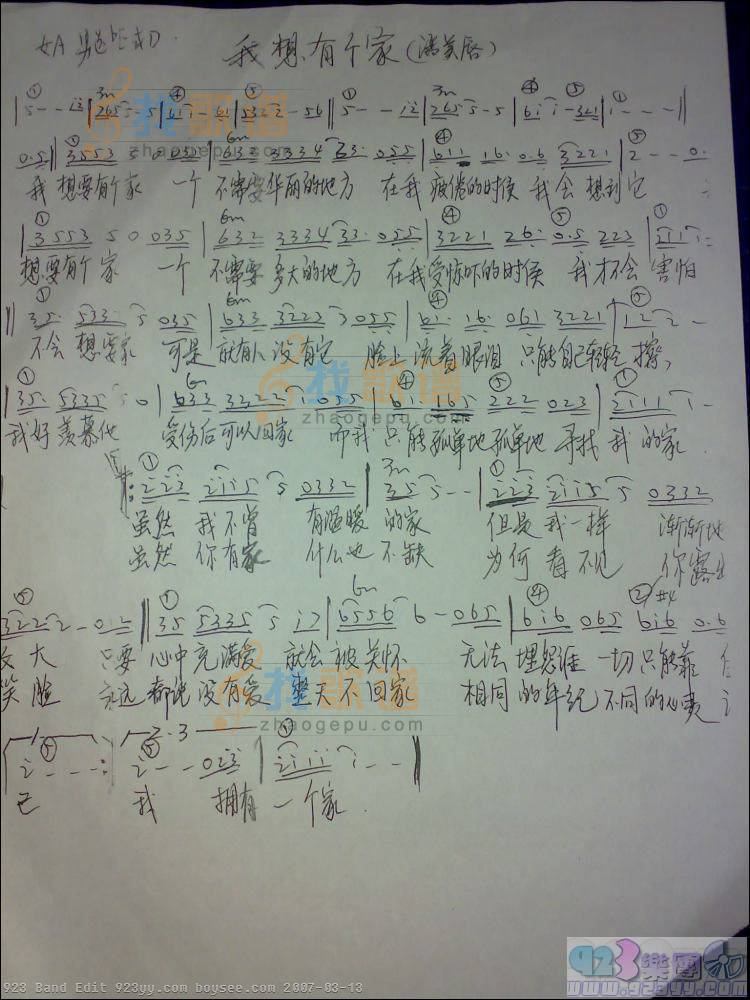 女A 男 bE 或D.
我想有个家(潘美辰)
| 5 - - i 2 | 2655 - 5 | 6 i i - 61 | 5322 - 56 || 5 - - i 2 | 2655 - 5 | 6 i i - 321 | i - - - ||
0.5 | 3553 5 0 032 | 633 3334 33. 055 | 611 16. 0.6 3221 | 2 - - 0.
我 想要有个家 一个 不需要华丽的地方 在我疲倦的时候 我会想到它
| 3553 5 0 035 | 632 3334 33. 055 | 3221 26. 0.5 223 |
想要有个家 一个 不需要多大的地方 在我受惊吓的时候 我才不会 害怕
|| 35. 533. 5 035 | 633 3223 3 055 | 61. 16. 061 3221 | 122 -
不会 想要家 可是 就有人没有它 脸上流着眼泪 只能自己轻轻擦,
| 35. 5335 5 0 | 633 3322 i 055 | 61 165 222 023 | 2111 i -
我好羡慕他 受伤后可以回家 而我只能孤单地孤单地 寻找我的家.
0332 | 35 5 - - | 223 2115 5 0332
虽然 我不曾 有温暖 的家 但是 我一样 渐渐地
虽然 你有家 什么也 不缺 为何 看不见 你露出
3222 - 012 || 35 5335 5 i7 | 6556 6 - 065 | 6i6 065 6i6 0.6
长大 只要 心中充满爱 就会被关怀 无法埋怨谁 一切只能靠 自
笑脸 永远 都说没有爱 整天不回家 相同的年纪 不同的心灵 让
1 2.3
i - - - :| i - - 023 | 2iii i - - ||
己 我 拥有 一个家.
找歌谱
zhaogepu.com
找歌谱
zhaogepu.com
找歌谱
zhaogepu.com
923 Band Edit 923yy.com boysee.com 2007-03-13
923樂團
www.923yy.com